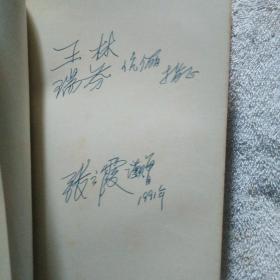 王林
瑞芬伉俪指正
张之霞谨赠
1991年